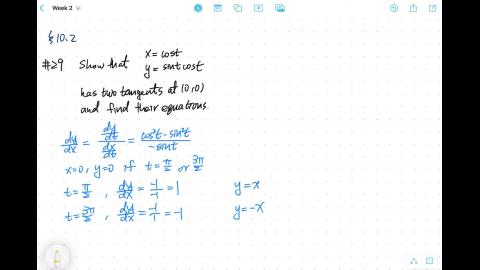 Week 2
§10.2
#29 Show that x = cost
y = sint cost
has two tangents at (0,0)
and find their equations.
dy/dx = (dy/dt)/(dx/dt) = (cos²t - sin²t)/(-sint)
x=0, y=0 if t = π/2 or 3π/2
t = π/2, dy/dx = -1/-1 = 1 y = x
t = 3π/2, dy/dx = -1/1 = -1 y = -x